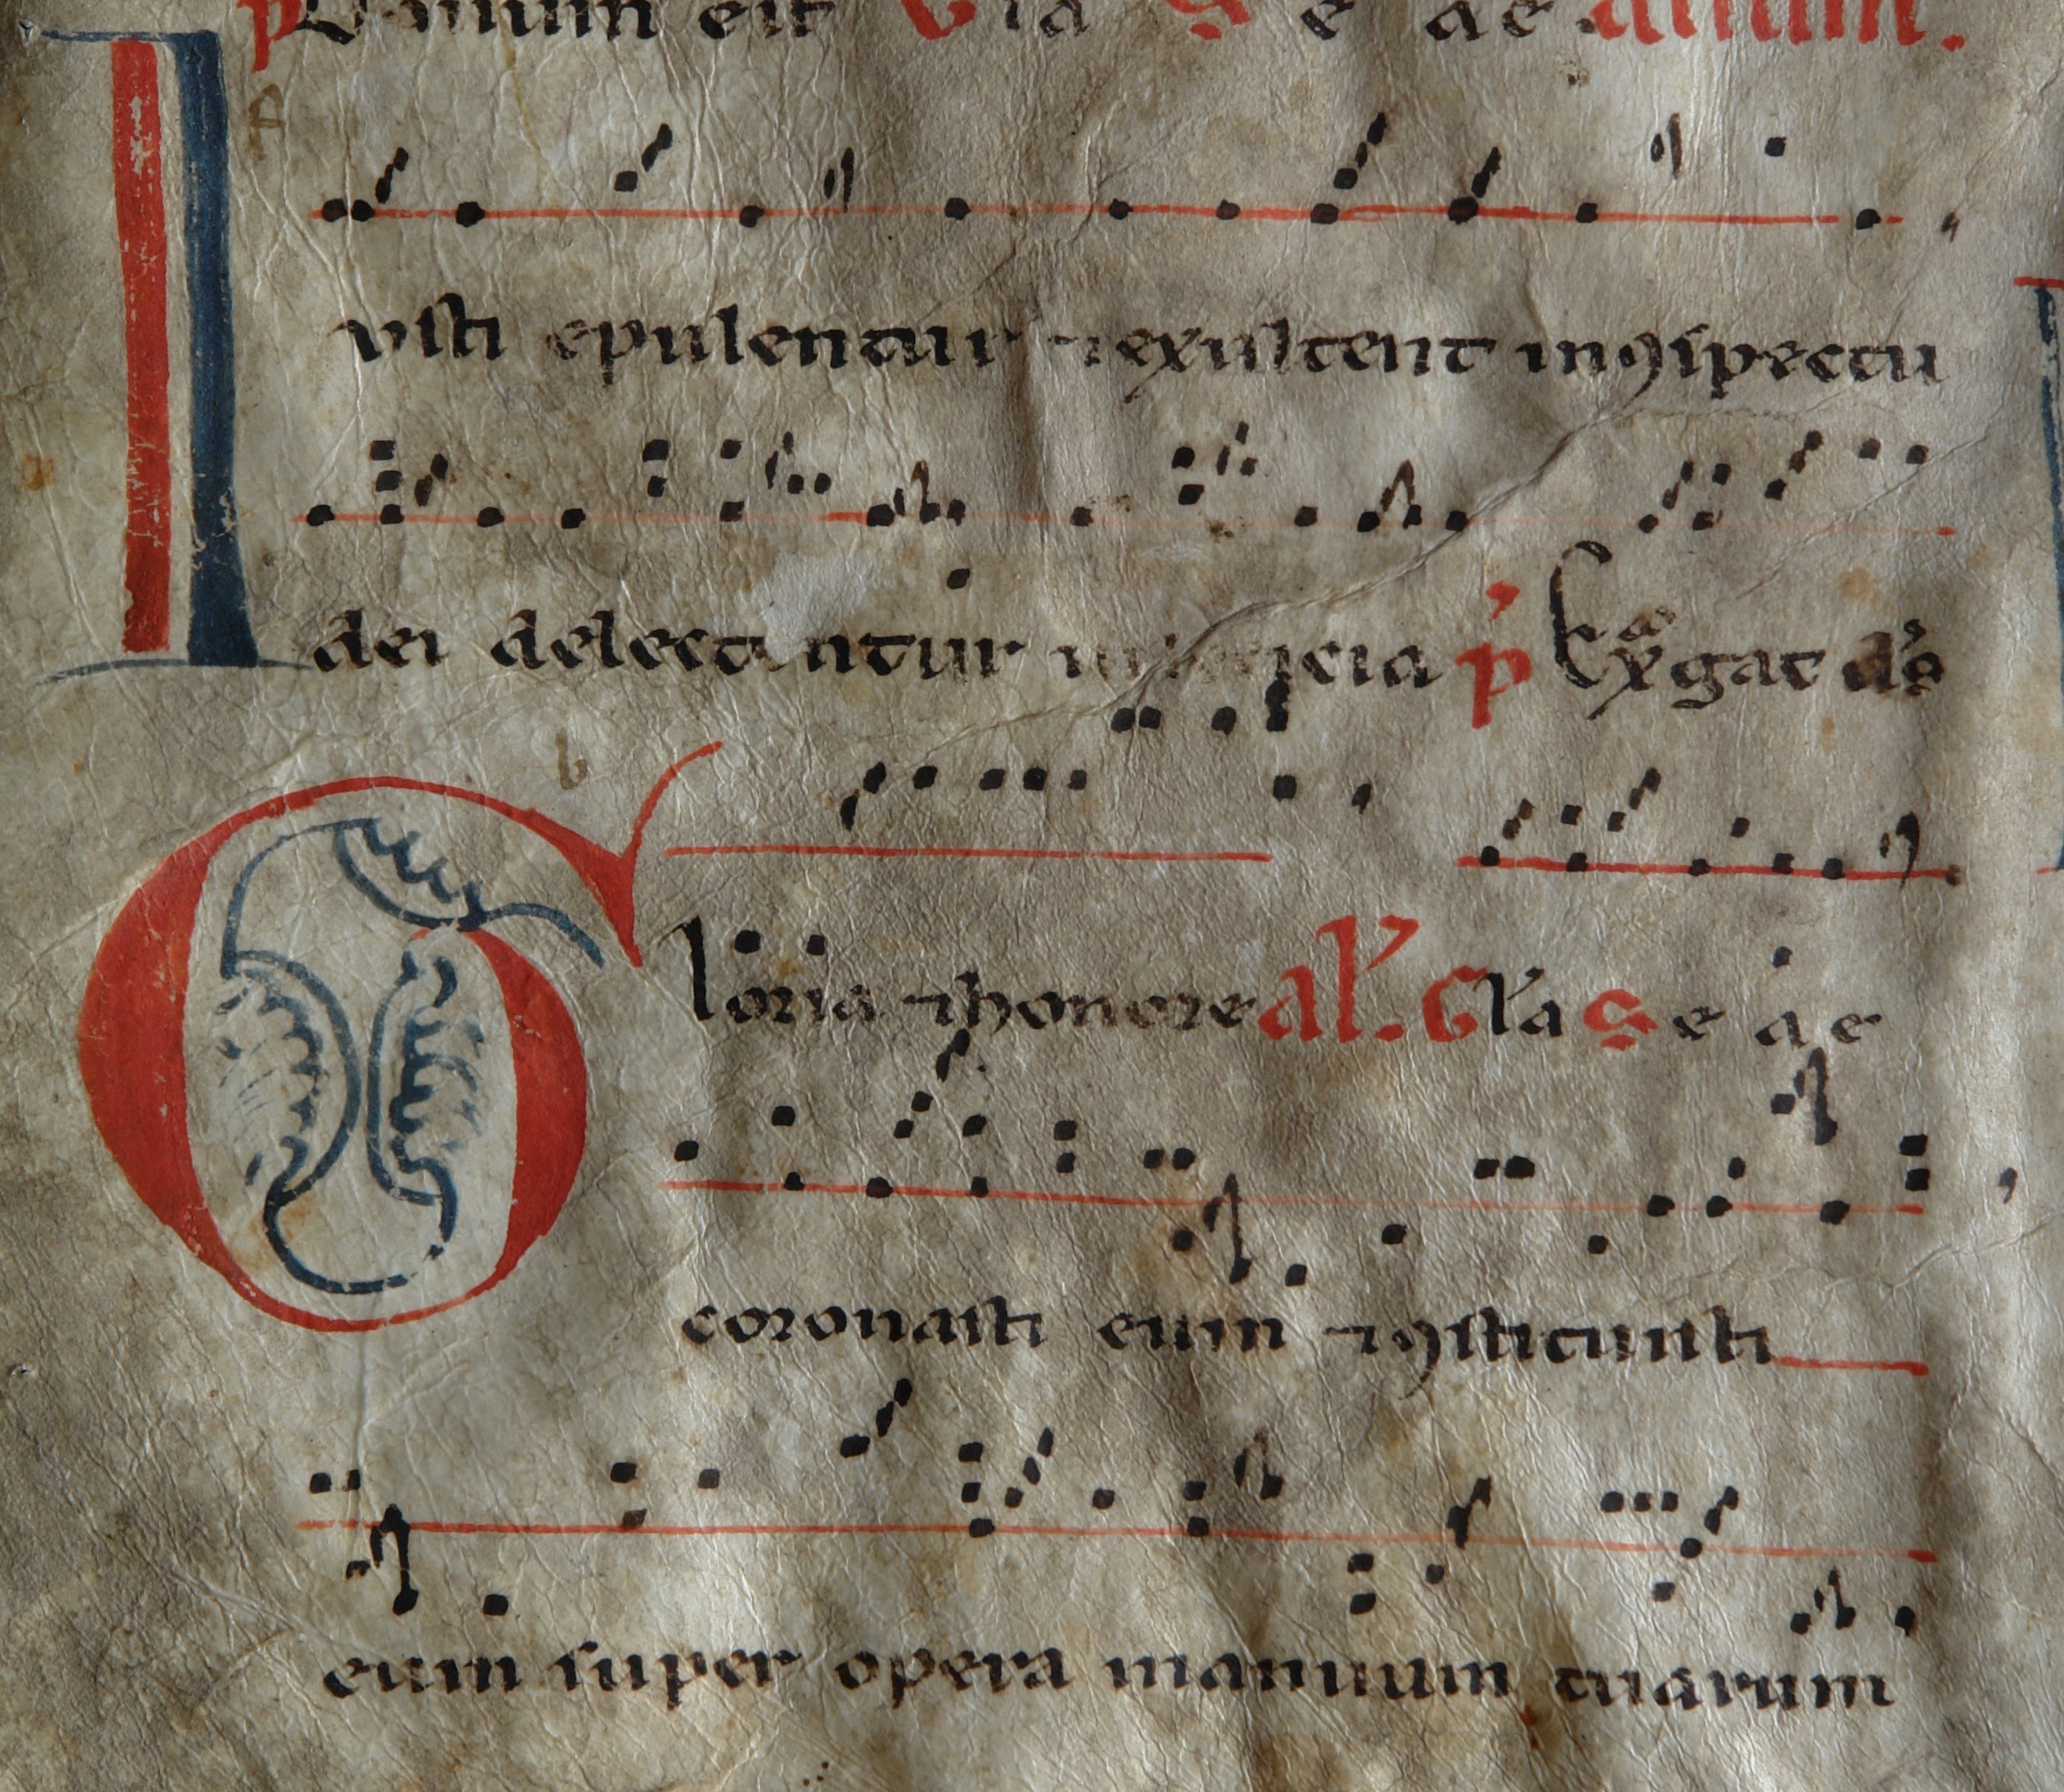 bonum est Gla S e ae amm.
Iusti epulentur ⁊ exultent in ꝯspectu
dei delectentur in leticia p̓ Exgat d̓s
Gloria ⁊ honore al'. Gl'a S e a e
coronasti eum ⁊ ꝯstituisti
eum super opera manuum tuarum